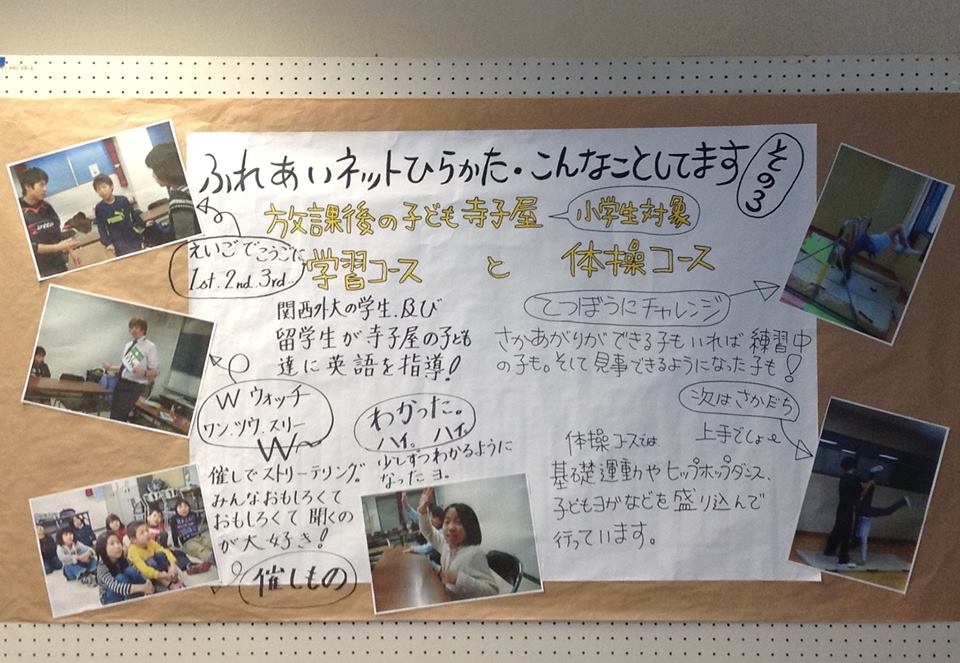 ふれあいネットひらかた・こんなことしてます
その3
放課後の子ども寺子屋
小学生対象
学習コース と 体操コース
えいごでこうごに
1st.2nd.3rd
関西外大の学生及び
留学生が寺子屋の子ども
達に英語を指導!
てつぼうにチャレンジ
さかあがりができる子もいれば練習中
の子も。そして見事できるようになった子も!
次はさかだち
上手でしょ
W ウォッチ
ワン、ツウ、スリー
W
わかった。
ハイ。ハイ。
少しずつわかるように
なったヨ。
催しでストリーテリング。
みんなおもしろくて
おもしろくて聞くの
が大好き!
催しもの
体操コースでは
基礎運動やヒップホップダンス、
子どもヨガなどを盛り込んで
行っています。